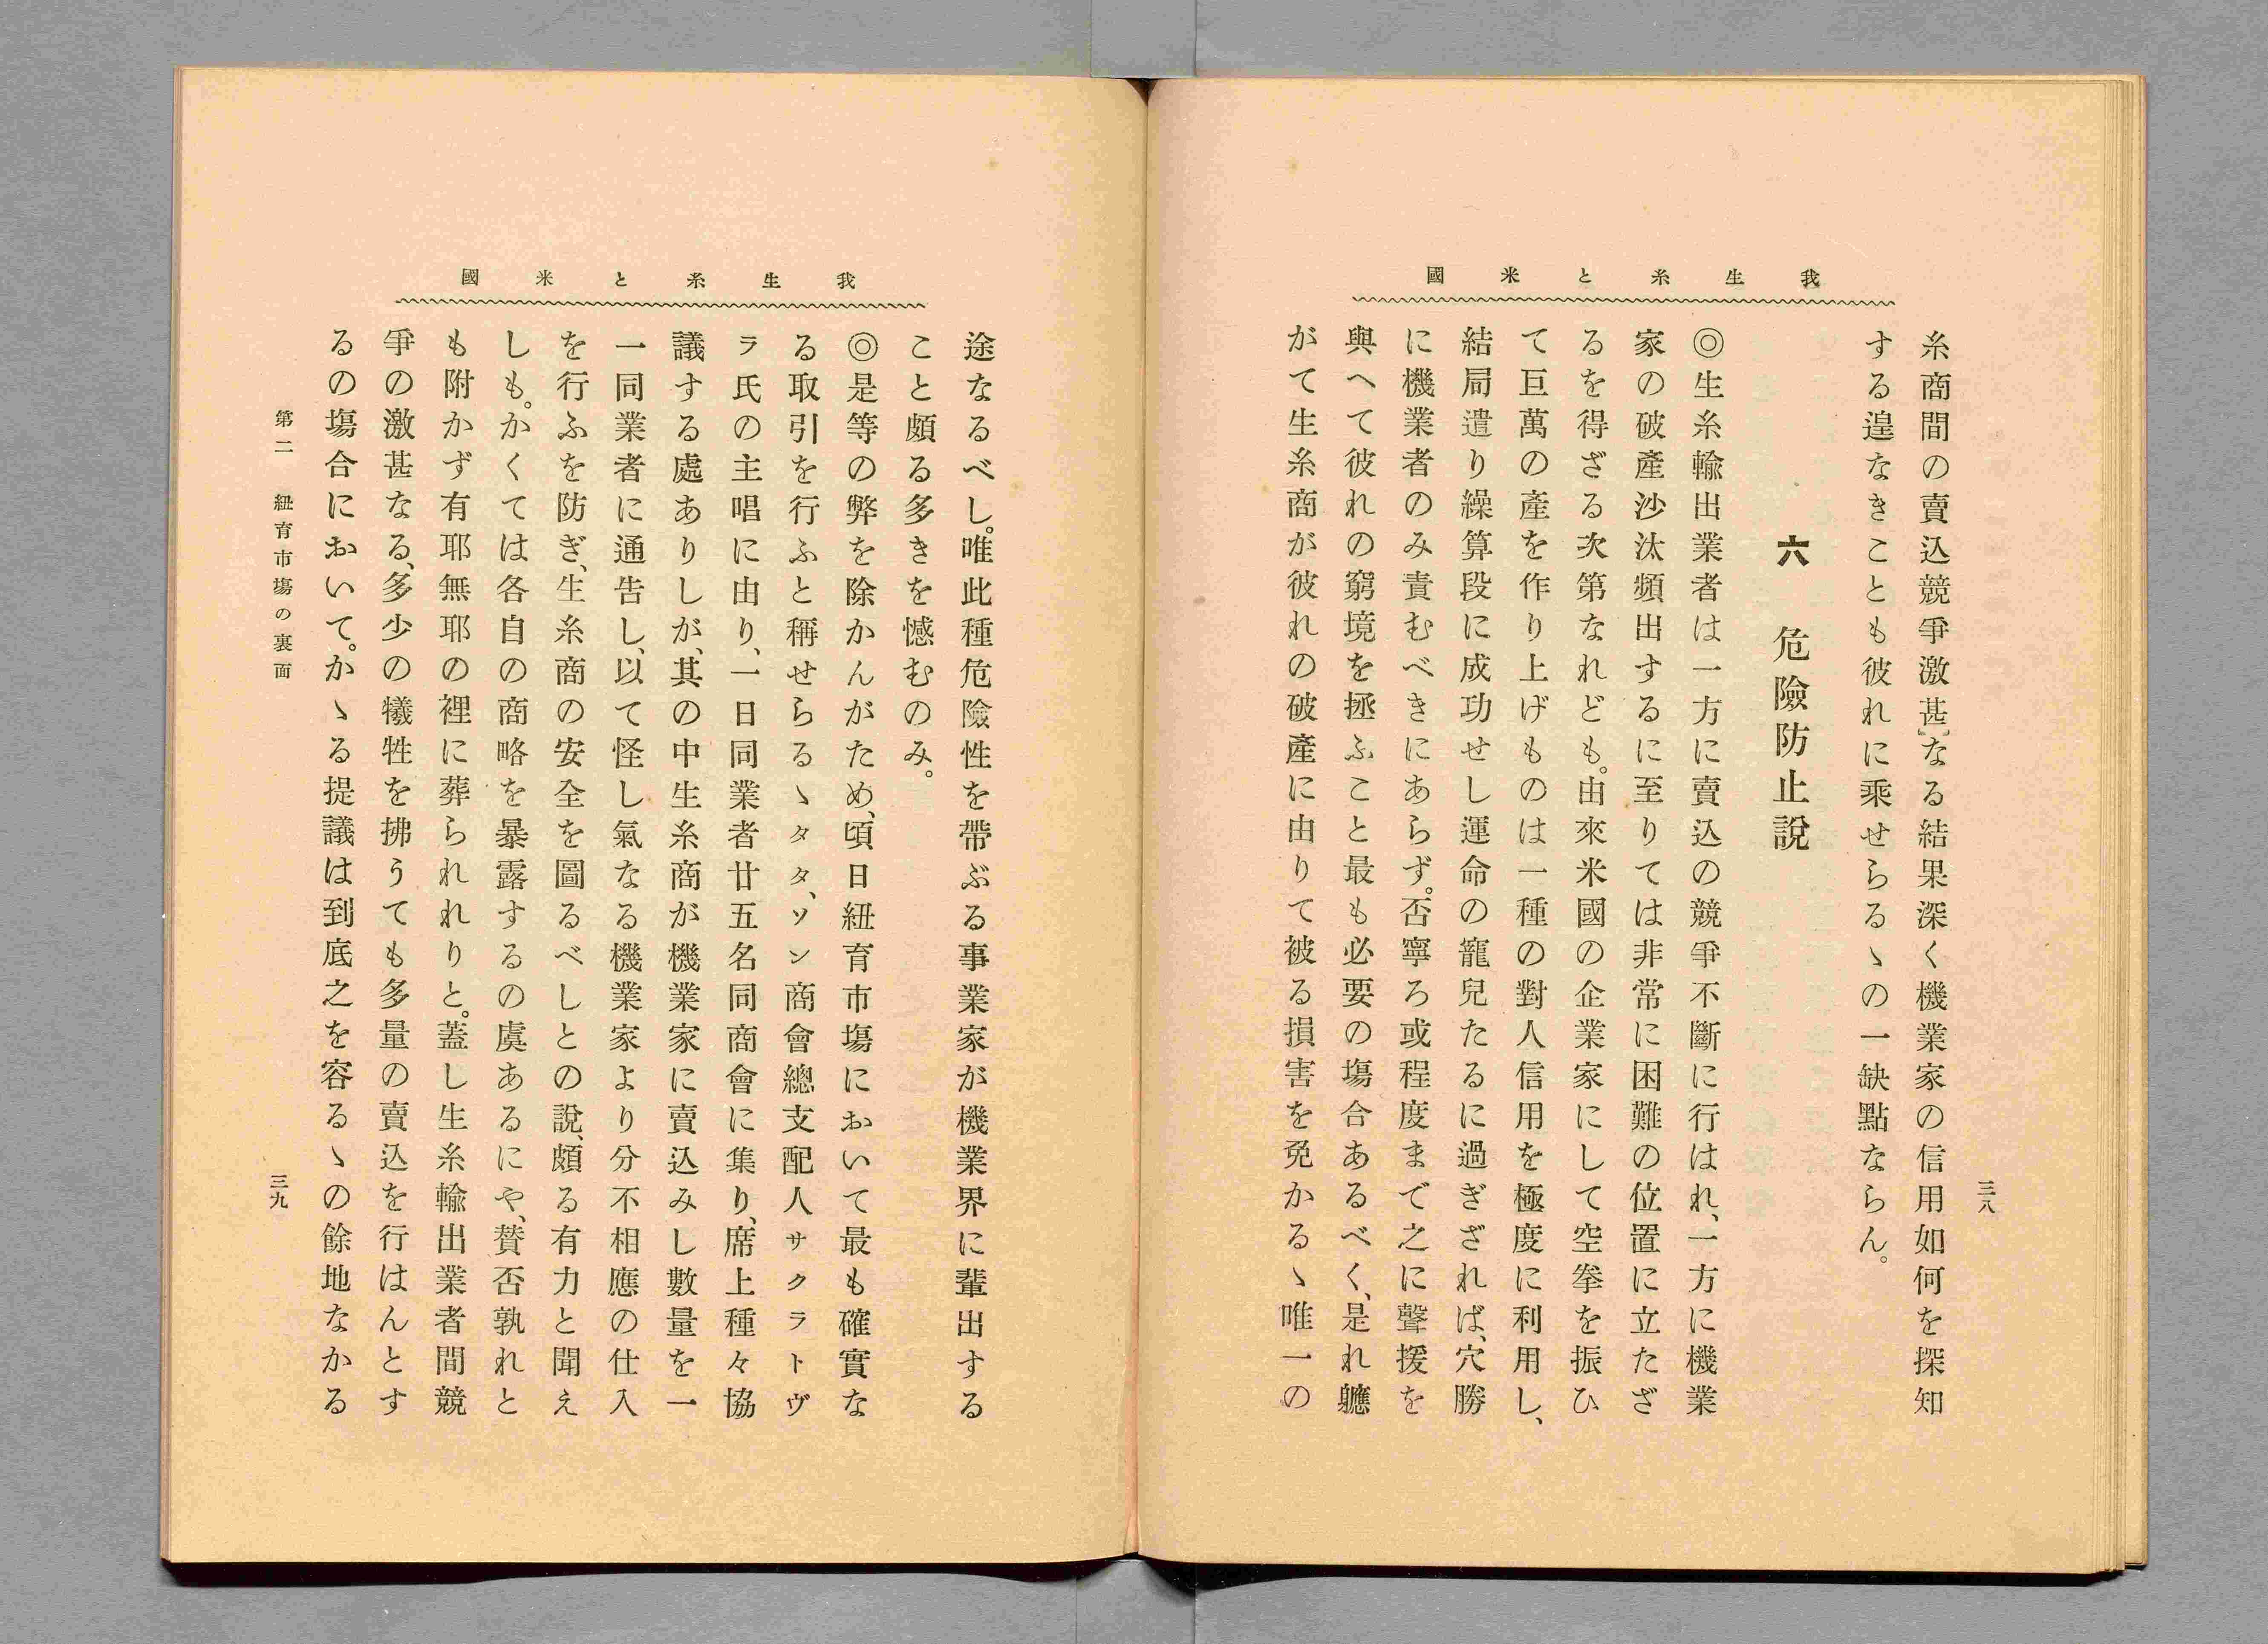 我生糸と米國
三八
糸商間の賣込競爭激甚なる結果深く機業家の信用如何を探知
する遑なきことも彼れに乘せらるゝの一缺點ならん。
六　危險防止說
◎生糸輸出業者は一方に賣込の競爭不斷に行はれ、一方に機業
家の破產沙汰頻出するに至りては非常に困難の位置に立たざ
るを得ざる次第なれども。由來米國の企業家にして空拳を振ひ
て巨萬の產を作り上げものは一種の對人信用を極度に利用し、
結局遣り繰算段に成功せし運命の寵兒たるに過ぎざれば、穴勝
に機業者のみ責むべきにあらず。否寧ろ或程度まで之に聲援を
與へて彼れの窮境を拯ふこと最も必要の塲合あるべく、是れ軈
がて生糸商が彼れの破產に由りて被る損害を免かるゝ唯一の
我生糸と米國
途なるべし。唯此種危險性を帶ぶる事業家が機業界に輩出する
こと頗る多きを憾むのみ。
◎是等の弊を除かんがため、頃日紐育市塲において最も確實な
る取引を行ふと稱せらるゝタタ、ソン商會總支配人サクラトヴ
ラ氏の主唱に由り、一日同業者廿五名同商會に集り、席上種々協
議する處ありしが、其の中生糸商が機業家に賣込みし數量を一
一同業者に通告し、以て怪し氣なる機業家より分不相應の仕入
を行ふを防ぎ、生糸商の安全を圖るべしとの說、頗る有力と聞え
しも。かくては各自の商略を暴露するの虞あるにや、賛否孰れと
も附かず有耶無耶の裡に葬られれりと。蓋し生糸輸出業者間競
爭の激甚なる、多少の犧牲を拂うても多量の賣込を行はんとす
るの塲合において。かゝる提議は到底之を容るゝの餘地なかる
第二　紐育市塲の裏面
三九